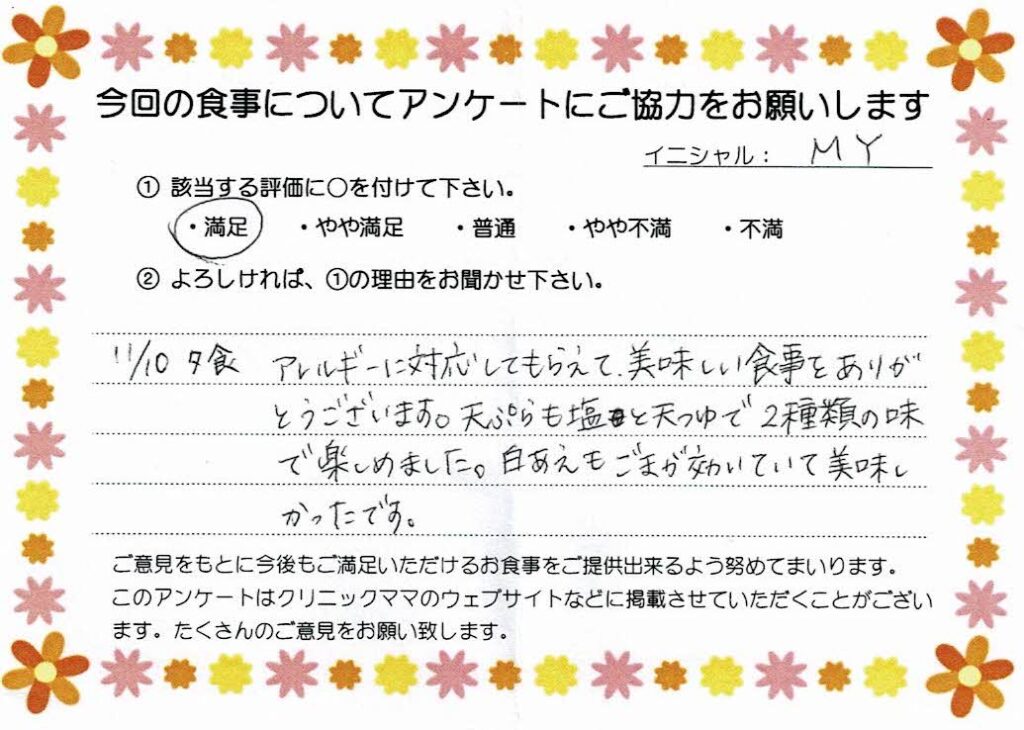 今回の食事についてアンケートにご協力をお願いします
イニシャル： MY
① 該当する評価に○を付けて下さい。
・満足 ・やや満足 ・普通 ・やや不満 ・不満
② よろしければ、①の理由をお聞かせ下さい。
11/10 夕食 アレルギーに対応してもらえて、美味しい食事をありが
とうございます。天ぷらも塩と天つゆで2種類の味
で楽しめました。白あえもごまが効いていて美味し
かったです。
ご意見をもとに今後もご満足いただけるお食事をご提供出来るよう努めてまいります。
このアンケートはクリニックママのウェブサイトなどに掲載させていただくことがござい
ます。たくさんのご意見をお願い致します。